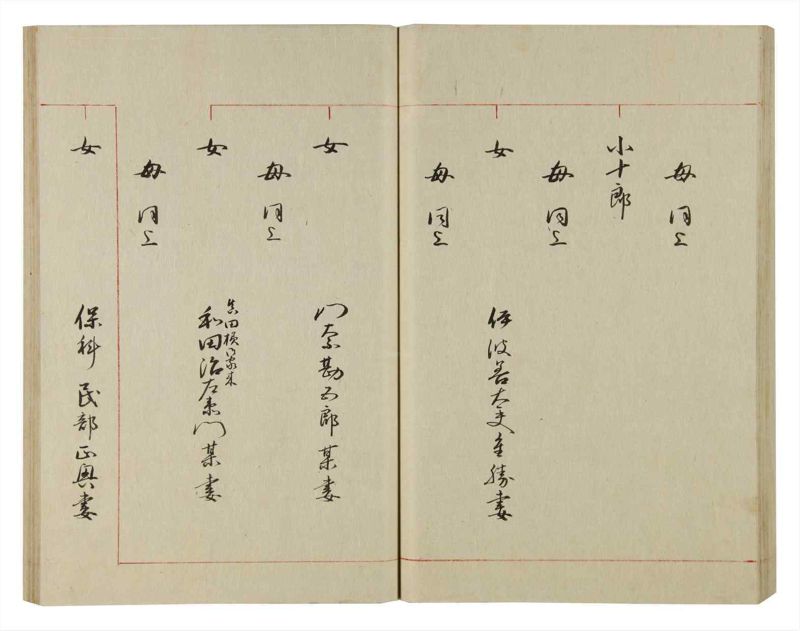 母同上
小十郎
母同上
女
伊波善太夫重勝妻
母同上
女
門奈勘五郎某妻
母同上
女
真田横の家来
和田治左衛門某妻
母同上
女
保科民部正興妻